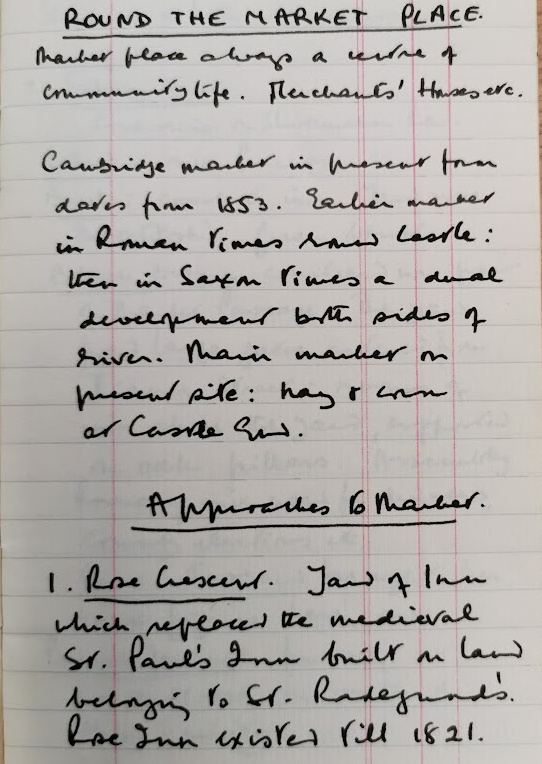 ROUND THE MARKET PLACE.
Market place always a centre of
community life. Merchants' Houses etc.
Cambridge market in present form
dates from 1853. Earlier market
in Roman times round Castle:
then in Saxon times a dual
development both sides of
river. Main market on
present site: hay & corn
at Castle End.
Approaches to Market.
1. Rose Crescent. Yard of Inn
which replaced the medieval
St. Paul's Inn built on land
belonging to St. Radegund's.
Rose Inn existed till 1821.